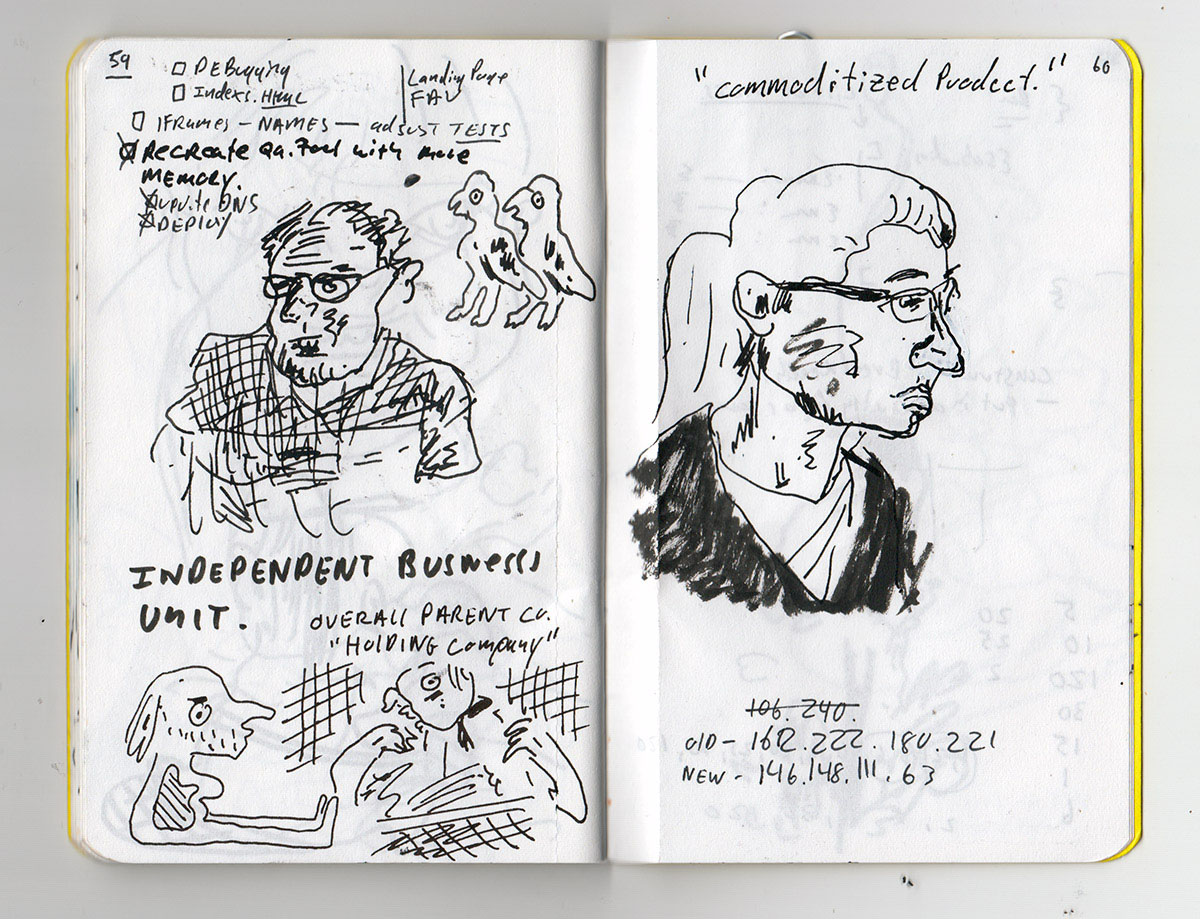 59
DEBugging
Indexs.HTML
Landing Page
FAV
IFRAMES - NAMES — adjust TESTS
RECREATE QA.Tool with more
MEMORY.
update DNS
DEPLOY
INDEPENDENT BUSINESS
UNIT.
OVERALL PARENT CO.
"HOLDING company"
60
"commoditized Product."
106.240.
OLD - 162.222.180.221
NEW - 146.148.111.63